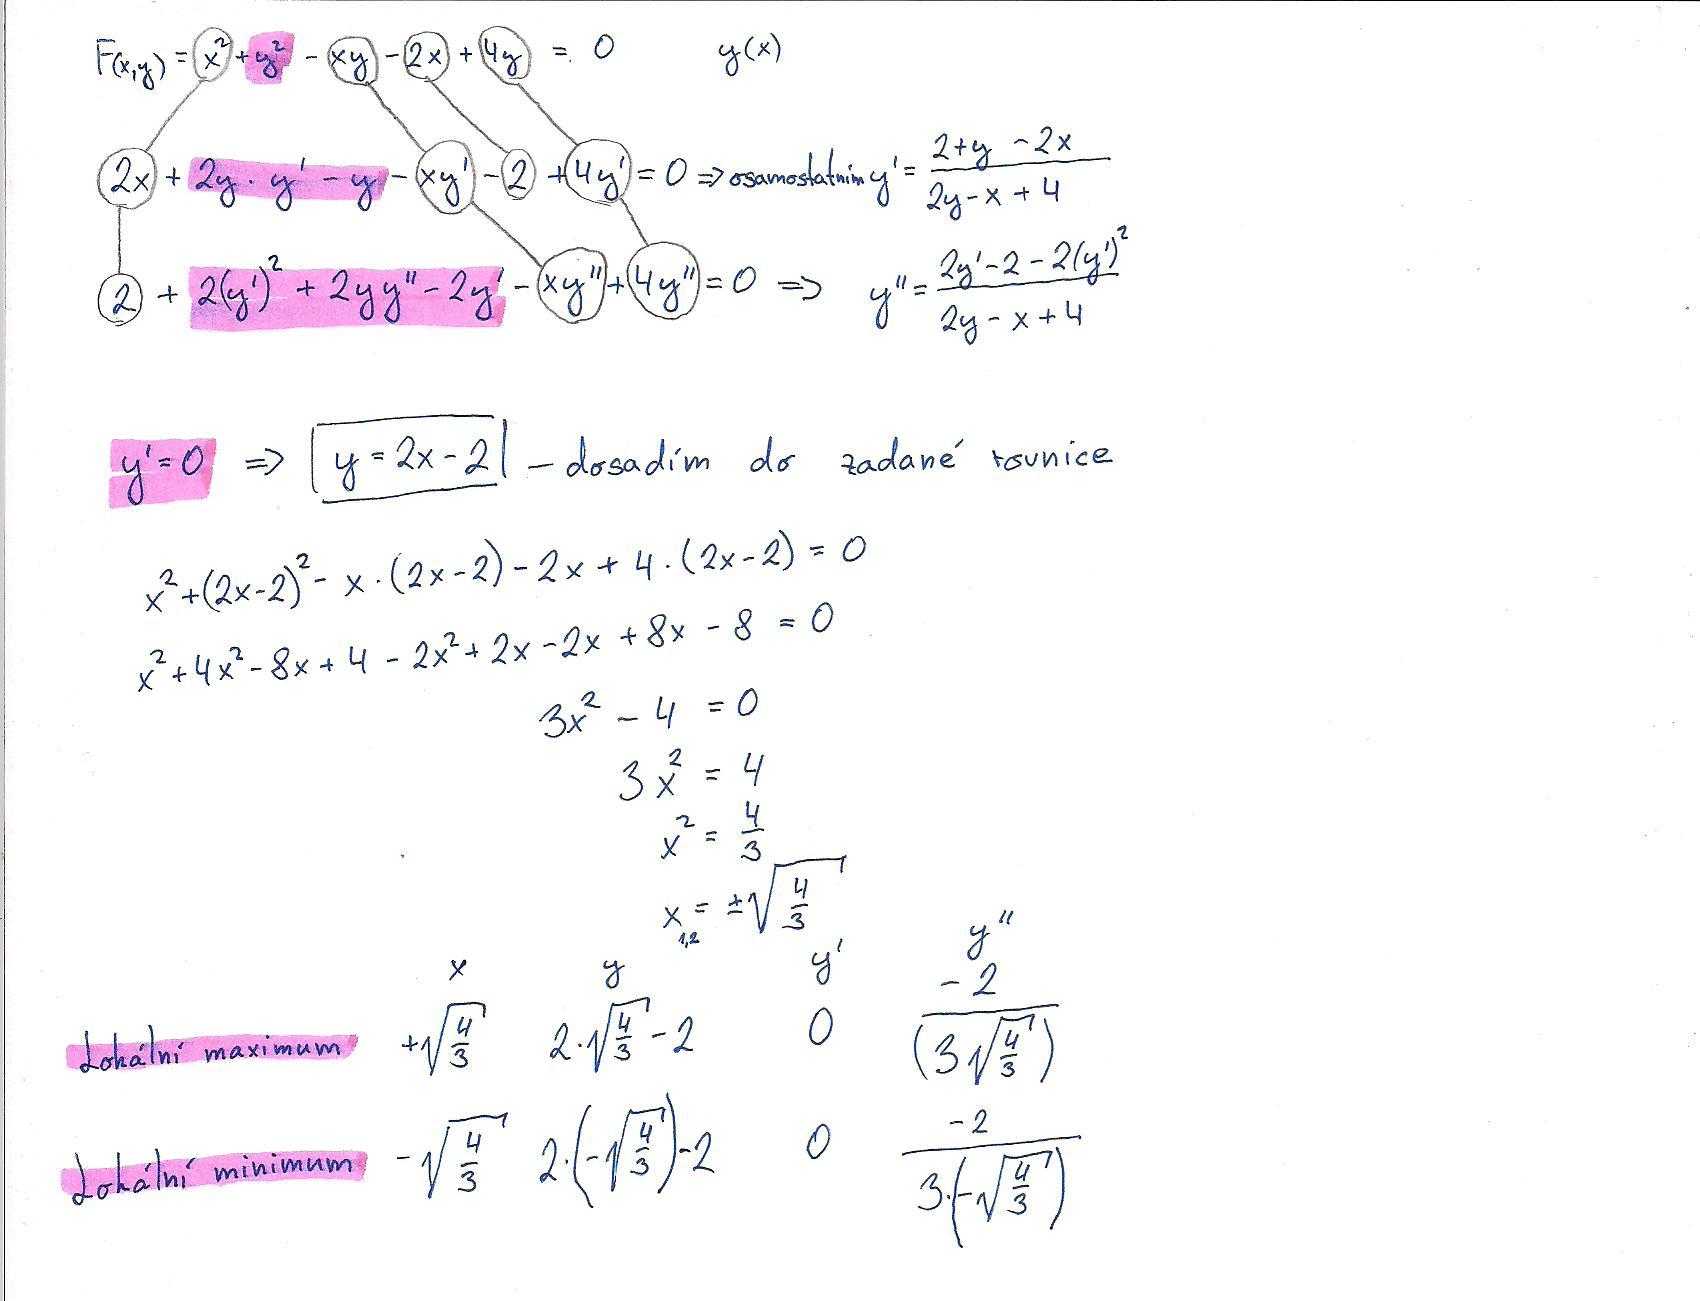 F(x,y) = x² + y² - xy - 2x + 4y = 0 y(x)
2x + 2y · y' - y - xy' - 2 + 4y' = 0 ⇒ osamostatním y' = (2+y-2x)/(2y-x+4)
2 + 2(y')² + 2yy'' - 2y' - xy'' + 4y'' = 0 ⇒ y'' = (2y'-2-2(y')²)/(2y-x+4)
y' = 0 ⇒ y = 2x - 2 - dosadím do zadané rovnice
x² + (2x-2)² - x·(2x-2) - 2x + 4·(2x-2) = 0
x² + 4x² - 8x + 4 - 2x² + 2x - 2x + 8x - 8 = 0
3x² - 4 = 0
3x² = 4
x² = 4/3
x₁,₂ = ±√(4/3)
x y y' y''
Lokální maximum +√(4/3) 2·√(4/3) - 2 0 -2/(3√(4/3))
Lokální minimum -√(4/3) 2·(-√(4/3)) - 2 0 -2/(3·(-√(4/3)))